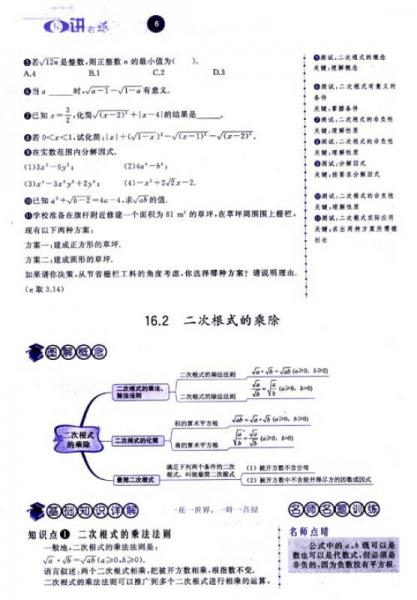 讲
6
❺若√12n是整数,则正整数 n 的最小值为(　　).
A.4　B.1　C.2　D.3
❻当 a ____ 时,√a-1 - √1-a 有意义.
❼已知 x=3/2,化简√(x-2)² + |x-4|的结果是____.
❽若 0<x<1,试化简:|x|+(√1-x)²-√(x-1)²-√(x-2)².
❾在实数范围内分解因式.
(1)3x²-5y²;　(2)4a⁴-b⁴;
(3)x⁴-3x²y²+2y⁴;　(4)-x²+2√2x-2.
❿已知 a²+√b-2=4a-4,求√ab的值.
⓫学校准备在旗杆附近修建一个面积为 81 m² 的草坪,在草坪周围围上栅栏,
现有以下两种方案:
方案一:建成正方形的草坪.
方案二:建成圆形的草坪.
如果请你决策,从节省栅栏工料的角度考虑,你选择哪种方案？请说明理由.
(π取 3.14)
❺测试:二次根式的概念
关键:理解概念
❻测试:二次根式有意义的
条件
关键:掌握条件
❼测试:二次根式的非负性
关键:理解性质
❽测试:二次根式的非负性
关键:理解性质
❾测试:分解因式
关键:按要求分解因式
❿测试:二次根式的非负性
关键:理解性质
⓫测试:二次根式实际应用
关键:求出两种方案所需栅
栏长
16.2　二次根式的乘除
图解概念
二次根式
的乘除
二次根式的乘法、
除法法则
二次根式的乘法法则　√a·√b=√ab (a≥0, b≥0)
二次根式的除法法则　√a/√b=√(a/b) (a≥0, b>0)
二次根式的化简
积的算术平方根　√ab=√a·√b (a≥0, b≥0)
商的算术平方根　√(a/b)=√a/√b (a≥0, b>0)
最简二次根式
满足下列两个条件的二次
根式,叫做最简二次根式
(1) 被开方数不含分母
(2) 被开方数中不含能开得尽方的因数或因式
基础知识详解
一花一世界,一叶一菩提
名师名题训练
知识点❶　二次根式的乘法法则
一般地,二次根式的乘法法则是:
√a·√b=√ab(a≥0,b≥0).
语言叙述:两个二次根式相乘,把被开方数相乘,根指数不变.
二次根式的乘法法则可以推广到多个二次根式进行相乘的运算.
名师点睛
公式中的 a,b 既可以是
数也可以是代数式,但必须是
非负的,因为负数没有平方根.